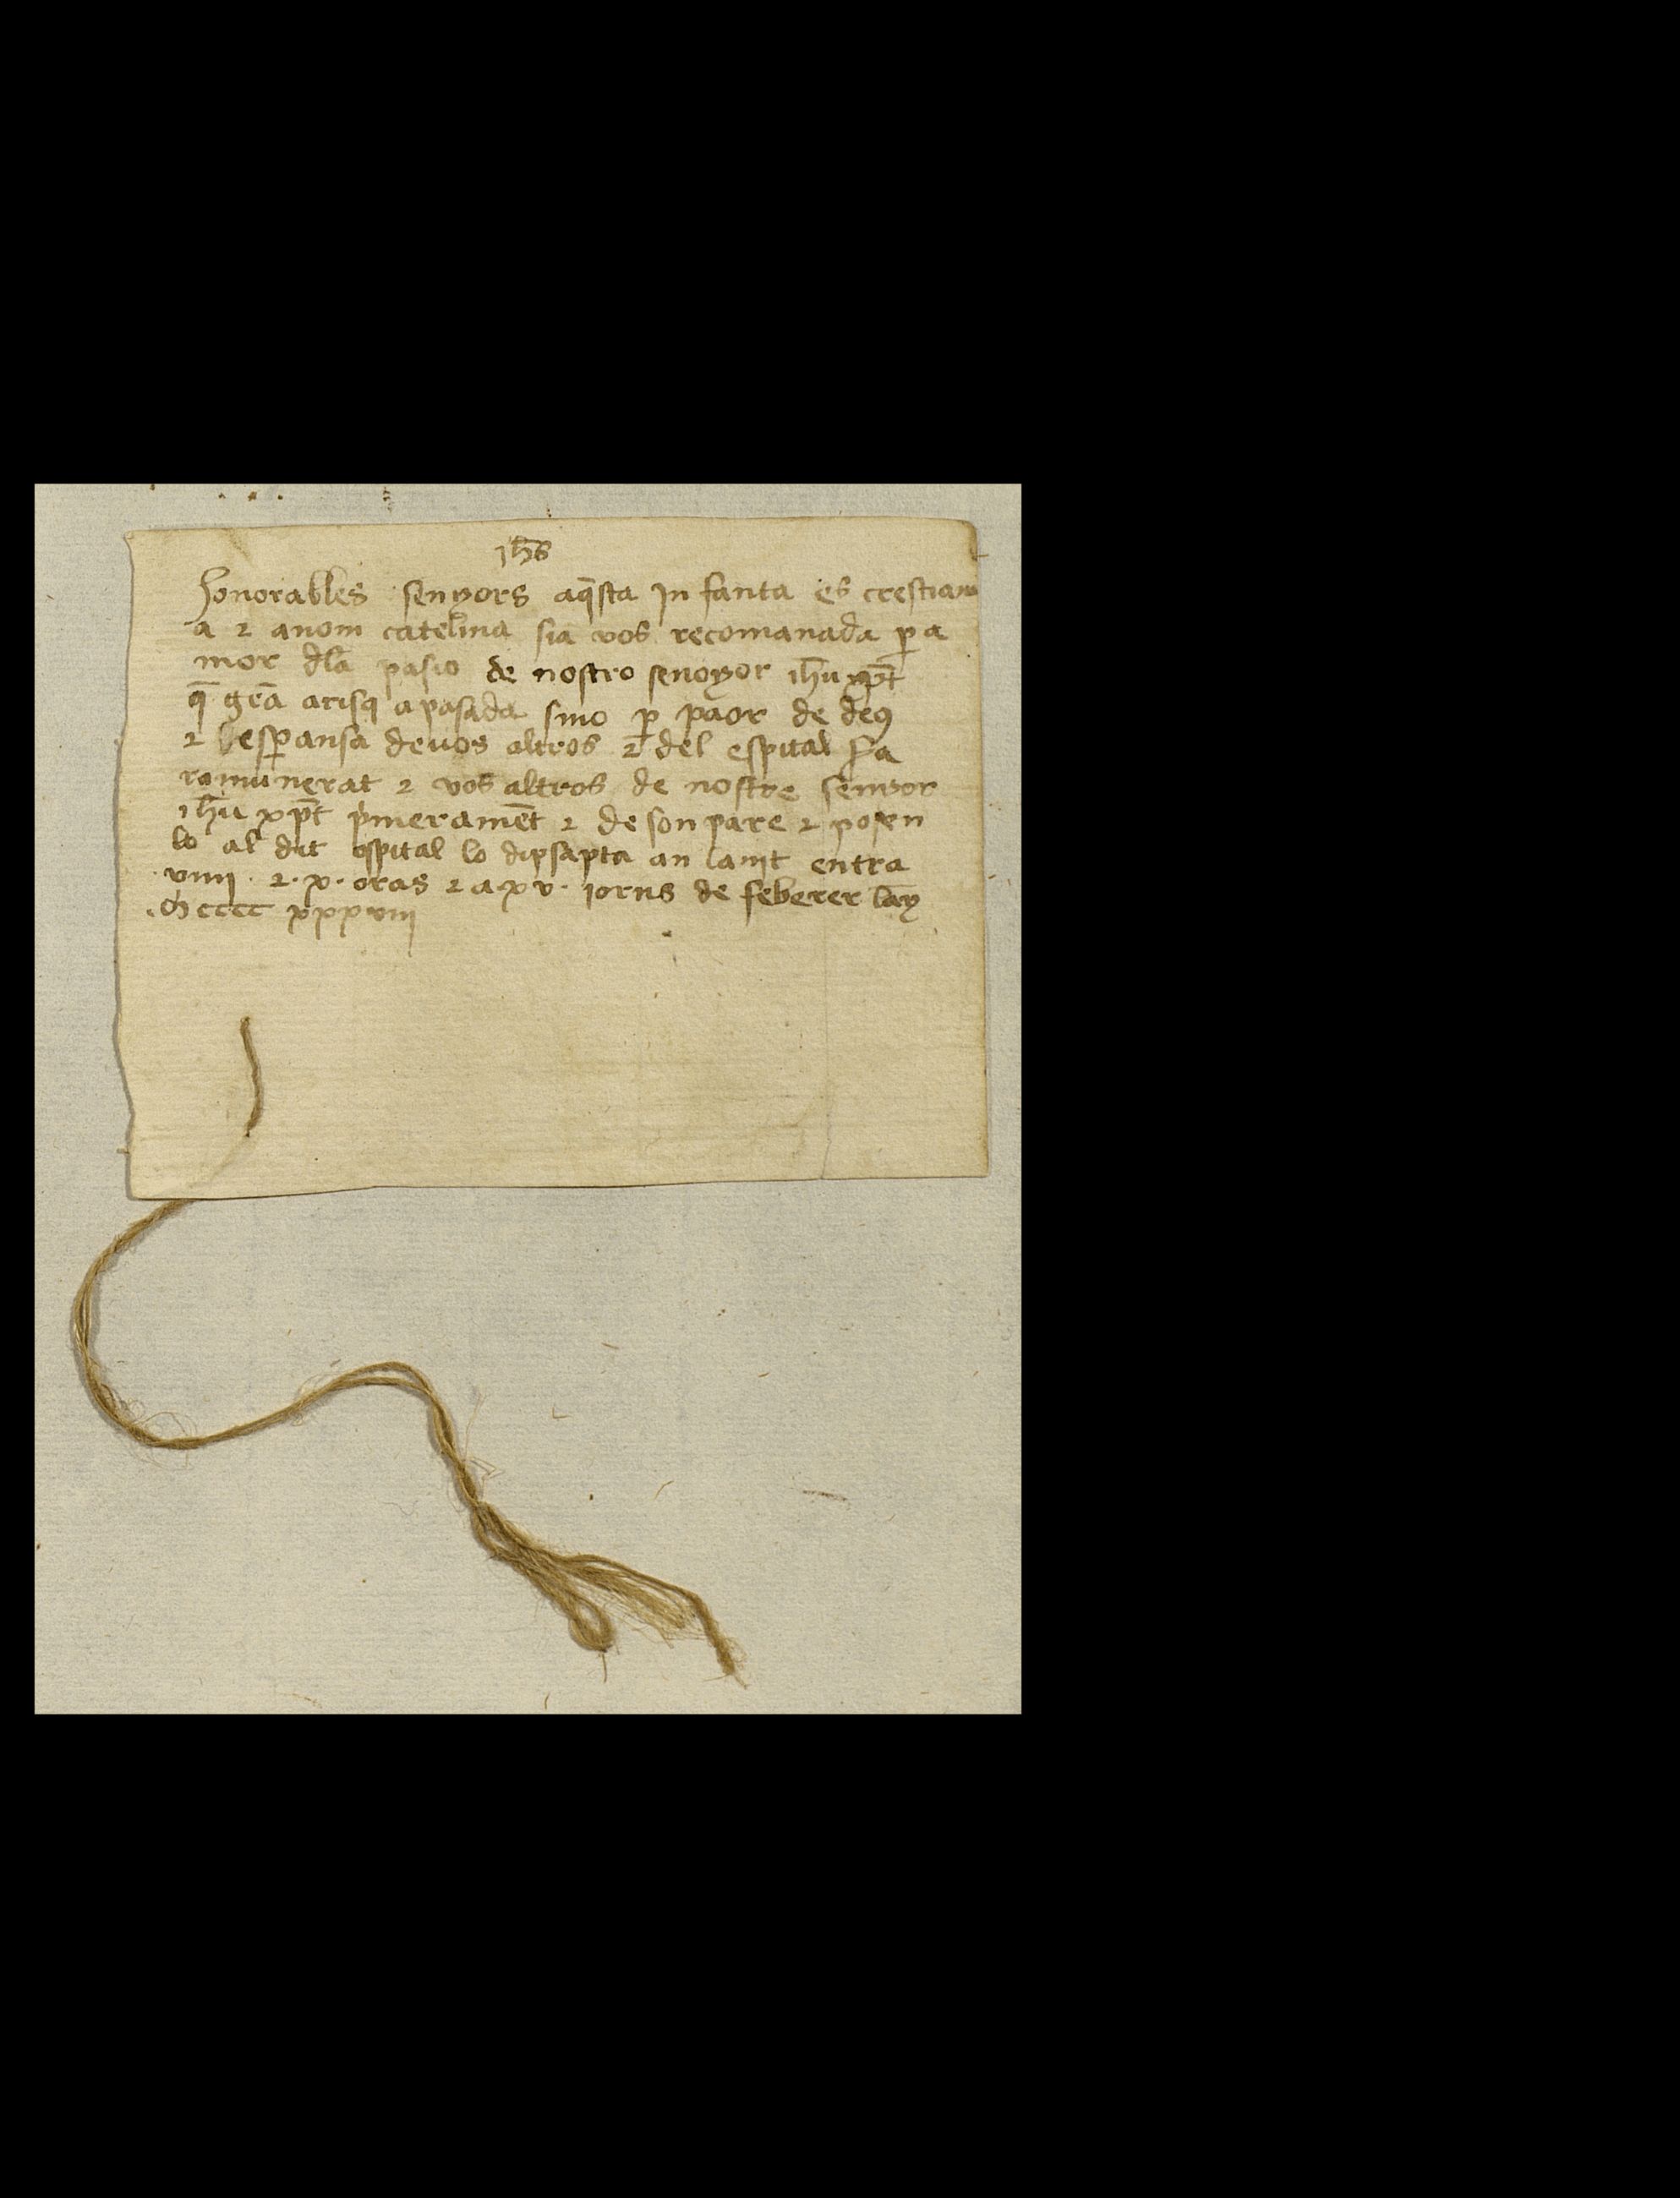 jħs
honorables senyors aq̄sta jn fanta es crestiana
a ⁊ anom catelina sia vos recomanada ꝑ a
mor dl̄a pasio de nostro senoyor ihū xp̄t
q̄ grā arisq apasada sino ꝑ paor de deꝯ
⁊ lesꝑansa deuos altros ⁊ del espital
⁊ vos altros de nostre senyor
ihū xp̄t pimeramēt ⁊ de son pare ⁊ posen
lo al dit espital lo dipsapta an lanit entra
viiij · ⁊ · x · oras ⁊ a · xv · jorns de feberer lāy
· M cccc xxxviij